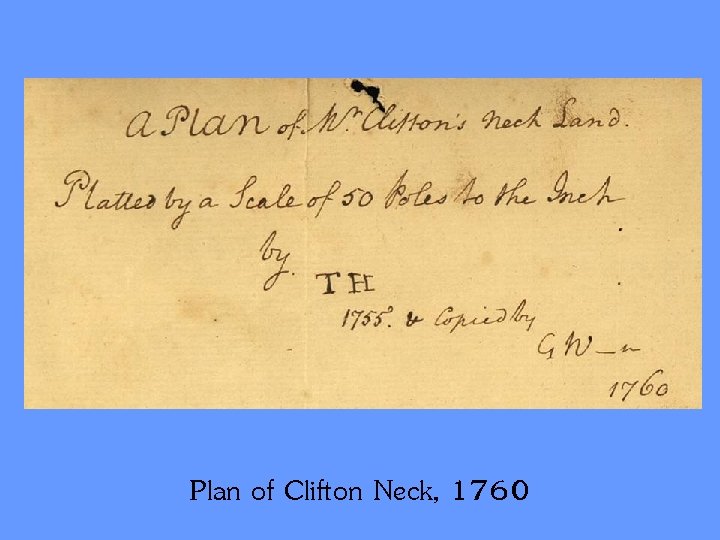 A Plan of Mr. Clifton's Neck Land.
Platted by a Scale of 50 Poles to the Inch
by.
T H
1755. & Copied by
G W—n
1760
Plan of Clifton Neck, 1760